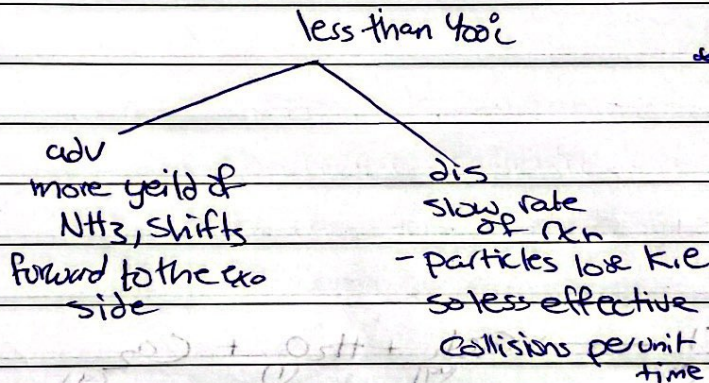 less than 400°c
adv
more yeild of
NH3, shifts
forward to the exo
side
dis
slow rate
of rxn
- particles lose K.e
so less effective
collisions per unit
time
+ H2O + CO2